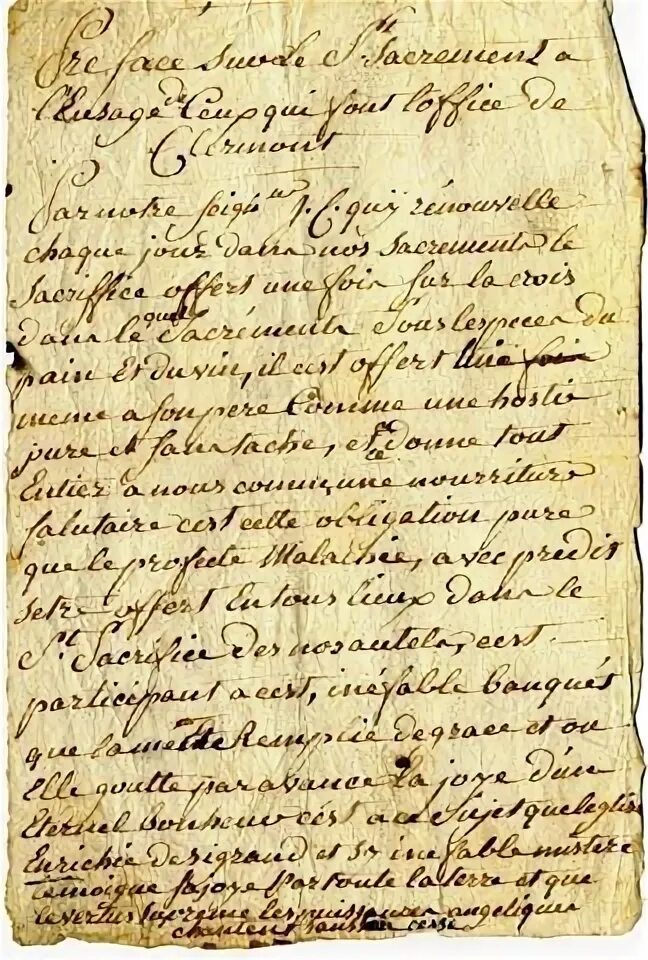 Preface sur le St Sacrement a
l'Eusage de Ceux qui font l'office de
Clermont
Par notre seigneur J. C. quy rénouvelle
chaque jour dans nos sacrements le
sacriffice offert une fois sur la crois
dans le quel Sacréments sous l'especes du
pain Et du vin, il cest offert
meme a son pere Comme une hostie
pure et sans tache, et ce donne tout
Entier a nous comme une nourriture
salutaire cest cette obligation pure
que le profecte Malachie, avec predit
setre offert En tous lieux dans le
St. Sacrifice des nos autels, cest
participant a cest, inéfable banqués
que lame Remplie de grace et ou
Elle goutte par avance La joye d'un
Eternel bonheur cést a ce Sujet que leglise
Enrichie de si grand et sy inefable mistere
temoigne sa joye Par toute la terre et que
le vertus supreme les puissances angeliques
chantent sans cesse